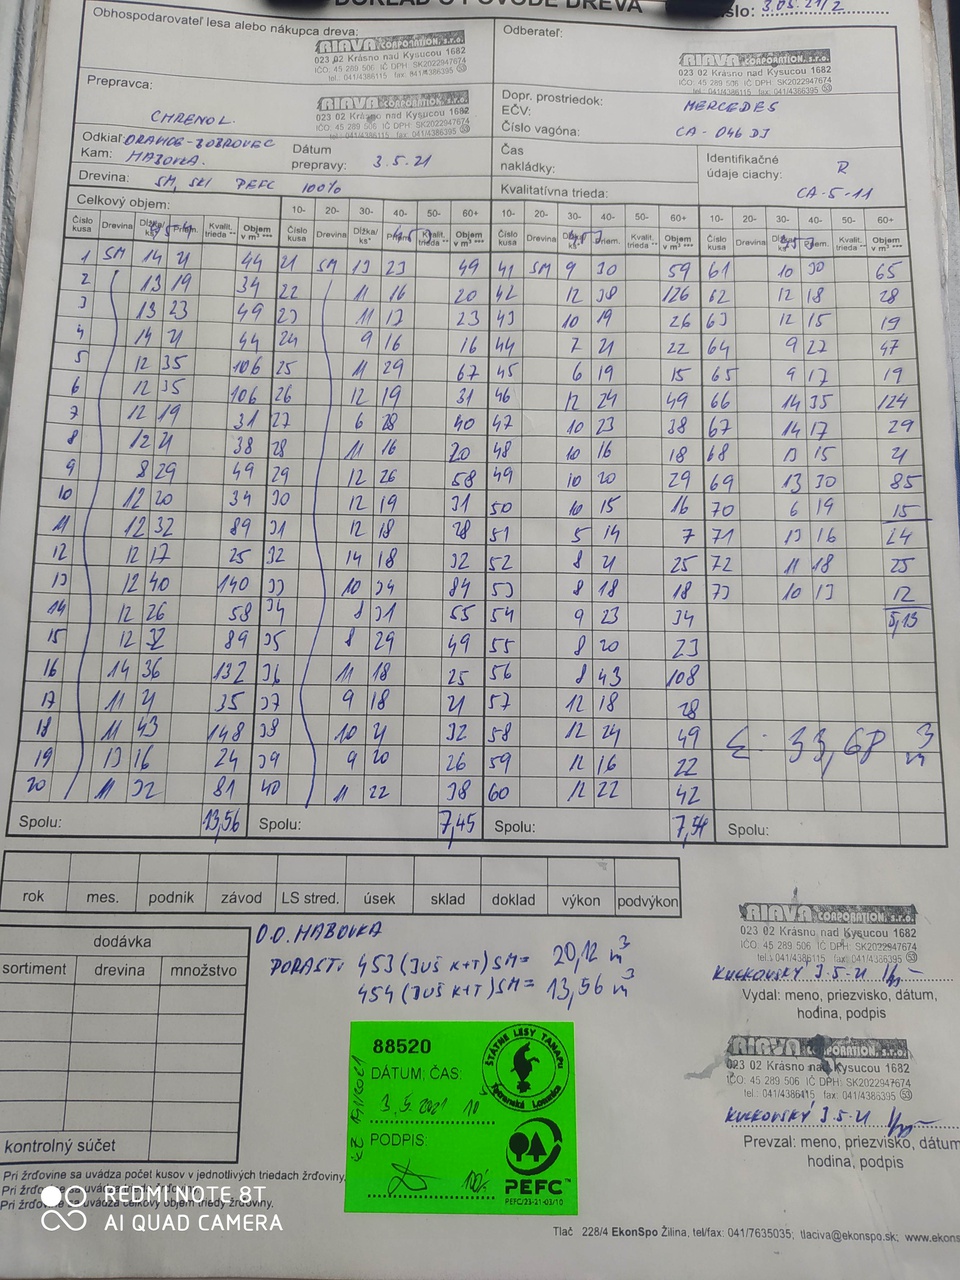 DOKLAD O PÔVODE DREVA
číslo: 3.05.21/2
Obhospodarovateľ lesa alebo nákupca dreva:
RIAVA CORPORATION, s.r.o.
023 02 Krásno nad Kysucou 1682
IČO: 45 289 506 IČ DPH: SK2022947674
tel.: 041/4386115 fax: 041/4386395 53
Odberateľ:
RIAVA CORPORATION, s.r.o.
023 02 Krásno nad Kysucou 1682
IČO: 45 289 506 IČ DPH: SK2022947674
tel.: 041/4386115 fax: 041/4386395 53
Prepravca:
CHRENOL.
RIAVA CORPORATION, s.r.o.
023 02 Krásno nad Kysucou 1682
IČO: 45 289 506 IČ DPH: SK2022947674
tel.: 041/4386115 fax: 041/4386395 53
Dopr. prostriedok: MERCEDES
EČV:
Číslo vagóna: CA-046DJ
Odkiaľ: ORAVICE-BOBROVEC
Kam: HABOVKA.
Dátum
prepravy: 3.5.21
Čas
nakládky:
Identifikačné
údaje ciachy: R
CA-5-11
Drevina: SM, SKI PEFC 100%
Kvalitatívna trieda:
Celkový objem: 10- 20- 30- 40- 50- 60+ 10- 20- 30- 40- 50- 60+ 10- 20- 30- 40- 50- 60+
Číslo kusa Drevina Dĺžka/ks* Priem. Kvalit. trieda ** Objem v m³ ***
Číslo kusa Drevina Dĺžka/ks* Priem. Kvalit. trieda ** Objem v m³ ***
Číslo kusa Drevina Dĺžka/ks* Priem. Kvalit. trieda ** Objem v m³ ***
Číslo kusa Drevina Dĺžka/ks* Priem. Kvalit. trieda ** Objem v m³ ***
1 SM 14 21 44 21 SM 13 23 49 41 SM 9 30 59 61 10 30 65
2 13 19 34 22 11 16 20 42 12 38 126 62 12 18 28
3 13 23 49 23 11 17 23 43 10 19 26 63 12 15 19
4 14 21 44 24 9 16 16 44 7 21 22 64 9 27 47
5 12 35 106 25 11 29 67 45 6 19 15 65 9 17 19
6 12 35 106 26 12 19 31 46 12 24 49 66 14 35 124
7 12 19 31 27 6 28 40 47 10 23 38 67 14 17 29
8 12 21 38 28 11 16 20 48 10 16 18 68 13 15 21
9 8 29 49 29 12 26 58 49 10 20 29 69 13 30 85
10 12 20 34 30 12 19 31 50 10 15 16 70 6 19 15
11 12 32 89 31 12 18 28 51 5 14 7 71 13 16 24
12 12 17 25 32 14 18 32 52 8 21 25 72 11 18 25
13 12 40 140 33 10 34 84 53 8 18 18 73 10 13 12
14 12 26 58 34 8 31 55 54 9 23 34 5,13
15 12 32 89 35 8 29 49 55 8 20 23
16 14 36 132 36 11 18 25 56 8 43 108
17 11 21 35 37 9 18 21 57 12 18 28
18 11 43 148 38 10 21 32 58 12 24 49 Σ: 33,68 m³
19 13 16 24 39 9 20 26 59 12 16 22
20 11 32 81 40 11 22 38 60 12 22 42
Spolu: 13,56 Spolu: 7,45 Spolu: 7,54 Spolu:
rok mes. podnik závod LS stred. úsek sklad doklad výkon podvýkon
dodávka
sortiment drevina množstvo
kontrolný súčet
O.O. HABOVKA
PORAST: 453 (JUŠ K+T) SM = 20,12 m³
454 (JUŠ K+T) SM = 13,56 m³
RIAVA CORPORATION, s.r.o.
023 02 Krásno nad Kysucou 1682
IČO: 45 289 506 IČ DPH: SK2022947674
tel.: 041/4386115 fax: 041/4386395 53
KUCKOVSKÝ 3.5.21
Vydal: meno, priezvisko, dátum,
hodina, podpis
RIAVA CORPORATION, s.r.o.
023 02 Krásno nad Kysucou 1682
IČO: 45 289 506 IČ DPH: SK2022947674
tel.: 041/4386115 fax: 041/4386395 53
KUCKOVSKÝ 3.5.21
Prevzal: meno, priezvisko, dátum
hodina, podpis
88520
DÁTUM; ČAS:
3.5.2021 10
PODPIS:
ŠTÁTNE LESY TANAPu
Tatranská Lomnica
PEFC™
PEFC/23-21-03/10
Pri žrďovine sa uvádza počet kusov v jednotlivých triedach žrďoviny,
Pri žrďovine sa
Pri žrďovine sa uvádza celkový objem triedy žrďoviny.
REDMI NOTE 8T
AI QUAD CAMERA
Tlač 228/4 EkonSpo Žilina, tel/fax: 041/7635035; tlaciva@ekonspo.sk; www.ekons